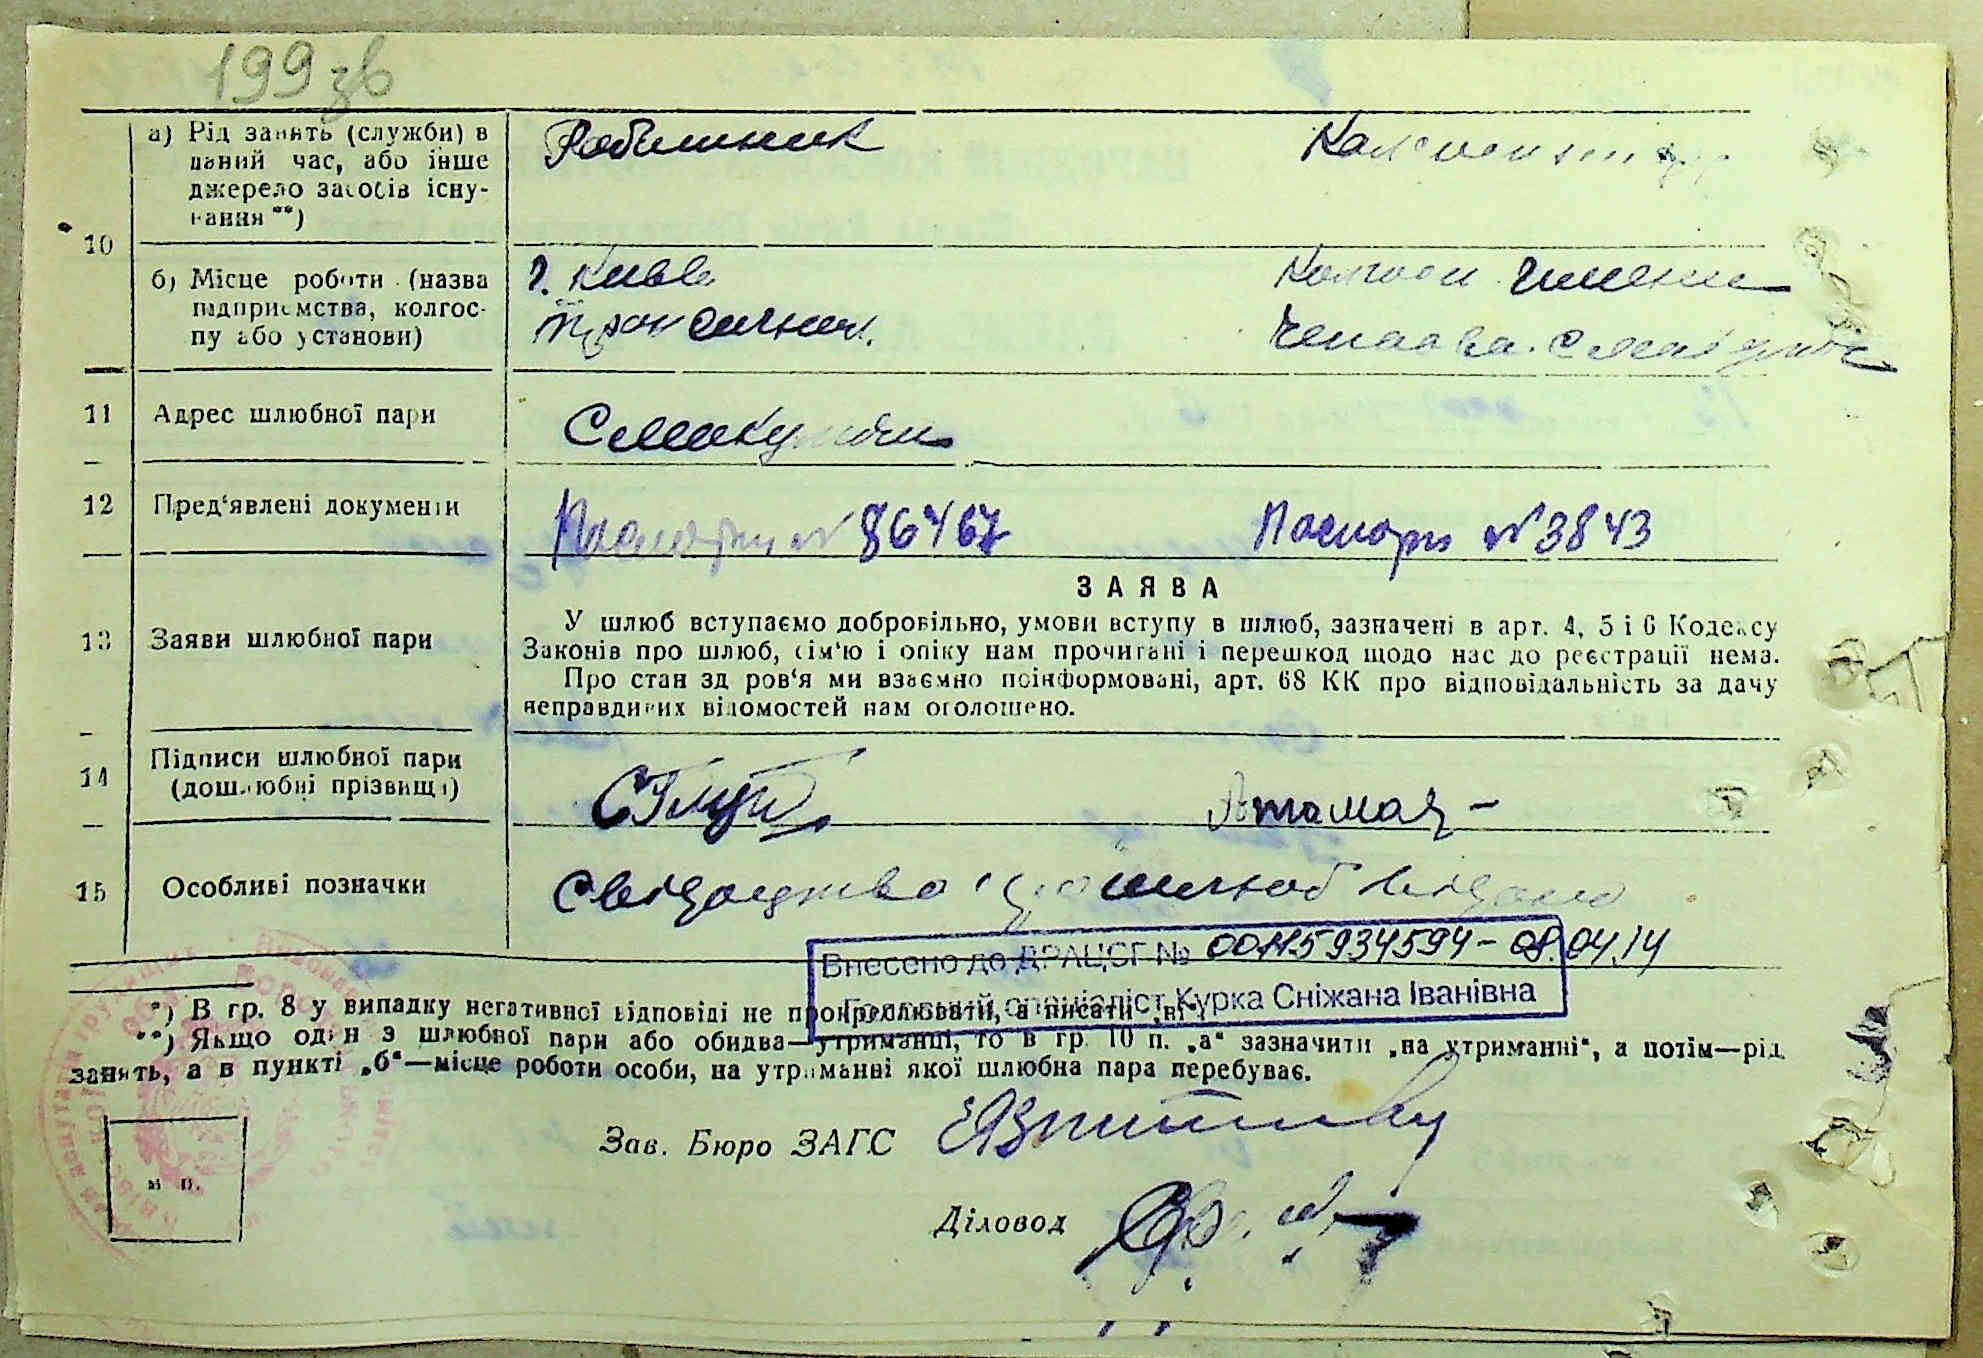 199 зв
а) Рід занять (служби) в
даний час, або інше
джерело засобів існу-
вання **)
Робитник
10
б) Місце роботи (назва
підприємства, колгос-
пу або установи)
г. Київ
Колгосп имени
Чапаєва.
11 Адрес шлюбної пари
12 Пред‘явлені документи
Паспорт № 86467 Паспорт № 3843
13 Заяви шлюбної пари
ЗАЯВА
У шлюб вступаємо добровільно, умови вступу в шлюб, зазначені в арт. 4, 5 і 6 Кодексу
Законів про шлюб, сім‘ю і опіку нам прочитані і перешкод щодо нас до реєстрації нема.
Про стан здоров‘я ми взаємно поінформовані, арт. 68 КК про відповідальність за дачу
неправдивих відомостей нам оголошено.
14 Підписи шлюбної пари
(дошлюбні прізвища)
Атаман –
15 Особливі позначки
Свідоцтво про шлюб видано
Внесено до ДРАЦСГ № 00115934594 – 08.04.14
Головний спеціаліст Курка Сніжана Іванівна
*) В гр. 8 у випадку негативної відповіді не прокреслювати, а писати „ні“.
**) Якщо один з шлюбної пари або обидва—утриманці, то в гр. 10 п. „а“ зазначити „на утриманні“, а потім—рід
занять, а в пункті „б“—місце роботи особи, на утриманні якої шлюбна пара перебуває.
Зав. Бюро ЗАГС
М. П.
Діловод